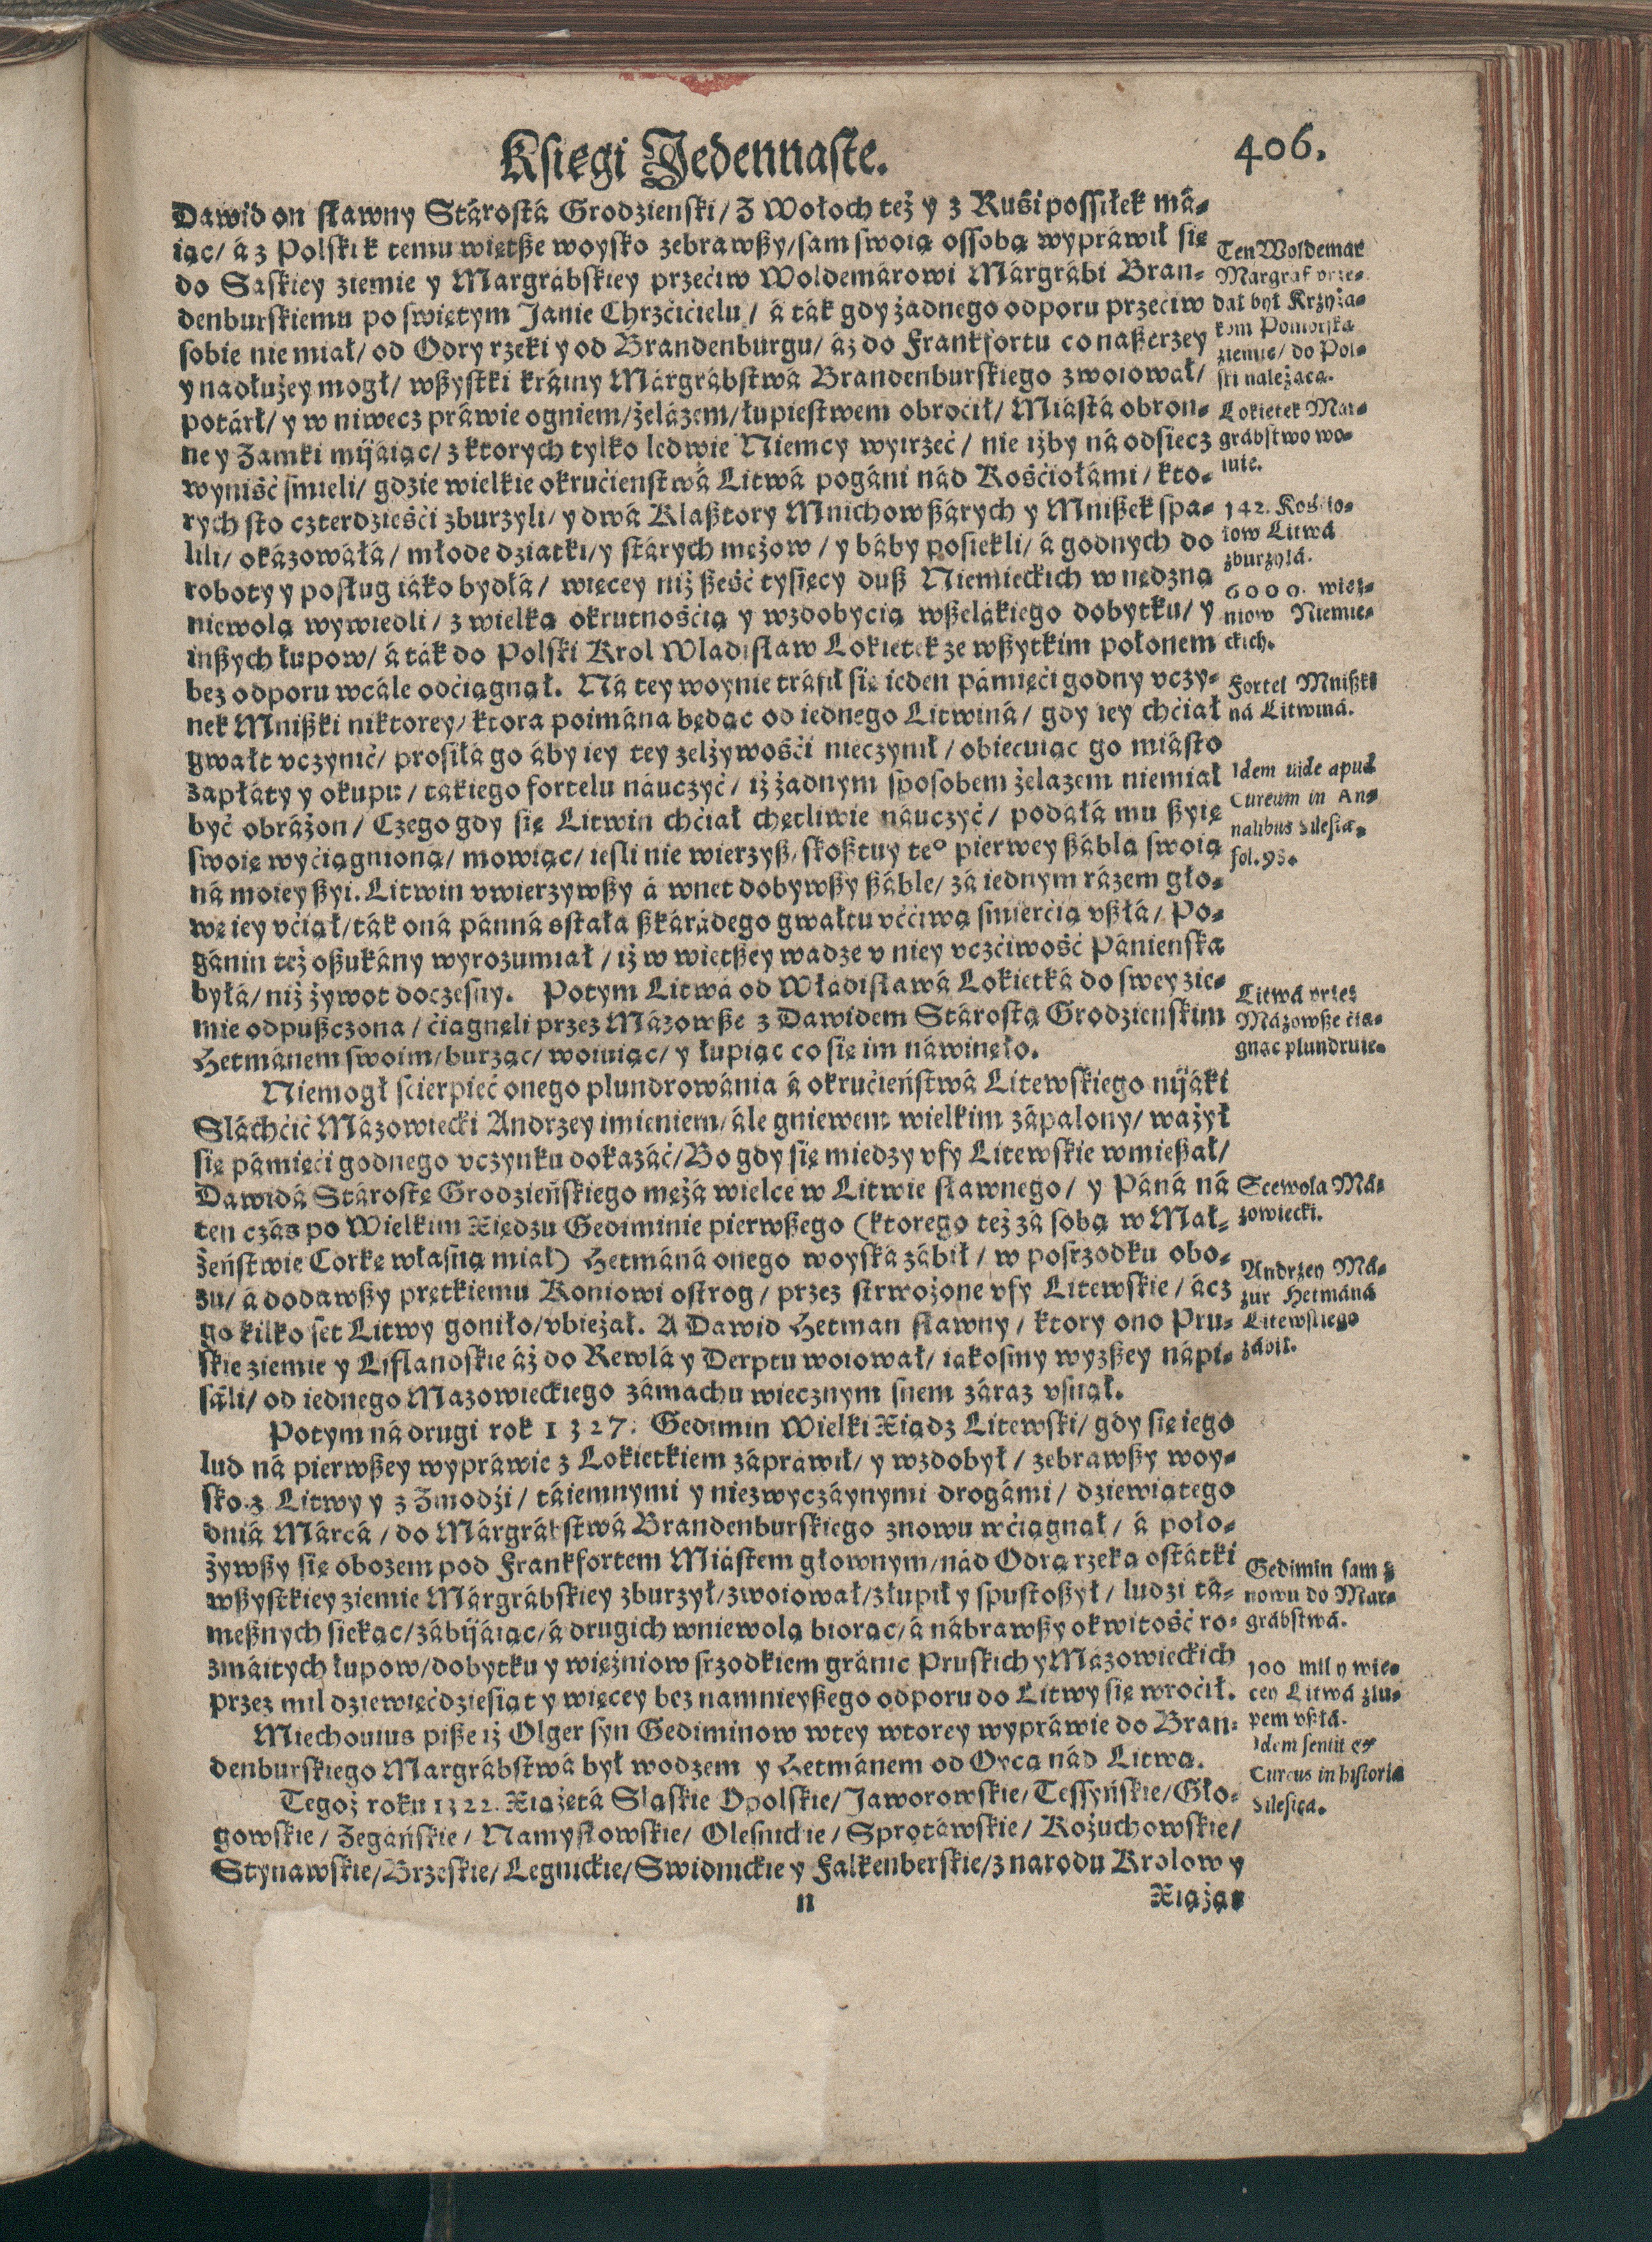 Księgi Jedennaste.
406.
Dawid on sławny Stárostá Grodzienski / Z Wołoch też y z Ruśi possiłek má-
iąc / á z Polski k temu więtsze woysko zebrawszy / sam swoią ossobą wypráwił się
do Saskiey ziemie y Margrábskiey przećiw Woldemárowi Márgrábi Bran-
denburskiemu po świętym Janie Chrzćićielu / á ták gdy żadnego odporu przećiw
sobie nie miał / od Odry rzeki y od Brandenburgu / áż do Frankfortu co naszerzey
y nadłużey mogł / wszystki kráiny Márgrábstwá Brandenburskiego zwoiował /
potárł / y w niwecz práwie ogniem / żelázem / łupiestwem obroćił / Miástá obron-
ne y Zamki mijáiąc / z ktorych tylko ledwie Niemcy wyirzeć / nie iżby ná odsiecz
wyniść śmieli / gdzie wielkie okrućienstwá Litwá pogáni nád Kośćiołámi / kto-
rych sto czterdzieśći zburzyli / y dwá Klasztory Mnichow szárych y Mniszek spa-
lili / okázowáłá / młode dziatki / y stárych mężow / y báby posiekli / á godnych do
roboty y posług iáko bydłá / więcey niż sześć tysięcy dusz Niemieckich w nędzną
niewolą wywiedli / z wielką okrutnośćią y wzdobyćią wszelákiego dobytku / y
inszych łupow / á ták do Polski Krol Wladisław Lokietek ze wszytkim połonem
bez odporu wcále odćiągnął. Ná tey woynie tráfił się ieden pámięći godny vczy-
nek Mniszki niktorey / ktora poimána będąc od iednego Litwiná / gdy iey chćiał
gwałt vczynić / prosiłá go áby iey tey zelżywośći nieczynił / obiecuiąc go miásto
zapłáty y okupu / tákiego fortelu náuczyć / iż żadnym sposobem żelazem niemiał
być obrážon / Czego gdy się Litwin chćiał chętliwie náuczyć / podáłá mu szyię
swoię wyćiągnioną / mowiąc / iesli nie wierzysz / skosztuy te° pierwey száblą swoią
ná moiey szyi. Litwin vwierzywszy á wnet dobywszy száble / zá iednym rázem gło-
wę iey vćiął / ták oná pánná ostałá szkárádego gwałtu vććiwą śmierćią vszłá / Po-
gánin też oszukány wyrozumiał / iż w wietszey wadze v niey vczćiwość Pánienska
byłá / niż żywot doczesny. Potym Litwá od Władisławá Lokietká do swey zie-
mie odpuszczona / ćiągnęli przez Mázowsze z Dawidem Stárostą Grodzienskim
Hetmánem swoim / burząc / woiuiąc / y łupiąc co się im náwinęło.
Niemogł scierpieć onego plundrowánia á okrućieństwá Litewskiego nijáki
Sláchćić Mázowiecki Andrzey imieniem / ále gniewem wielkim zápalony / ważył
się pámięći godnego vczynku dokazáć / Bo gdy się miedzy vfy Litewskie wmieszał /
Dawidá Stárostę Grodzieńskiego mężá wielce w Litwie sławnego / y Páná ná
ten czás po Wielkim Xiędzu Gediminie pierwszego (ktorego też zá sobą w Mał-
żeństwie Corkę własną miał) Hetmáná onego woyská zábił / w posrzodku obo-
zu / á dodawszy prętkiemu Koniowi ostrog / przez strwożone vfy Litewskie / ácz
go kilko set Litwy goniło / vbieżał. A Dawid Hetman sławny / ktory ono Pru-
skie ziemie y Liflandskie áż do Rewlá y Derptu woiował / iakosmy wyzszey nápi-
sáli / od iednego Mazowieckiego zámachu wiecznym snem záraz vsnął.
Potym ná drugi rok 1327. Gedimin Wielki Xiądz Litewski / gdy się iego
lud ná pierwszey wypráwie z Lokietkiem zápráwił / y wzdobył / zebrawszy woy-
sko z Litwy y z Żmodźi / táiemnymi y niezwyczáynymi drogámi / dziewiątego
dniá Márcá / do Márgrábstwá Brandenburskiego znowu wćiągnął / á poło-
żywszy się obozem pod Frankfortem Miástem głownym / nád Odrą rzeką ostátki
wszystkiey ziemie Márgrábskiey zburzył / zwoiował / złupił y spustoszył / ludzi tá-
mesznych siekąc / zábijáiąc / á drugich wniewolą biorąc / á nábrawszy okwitość ro-
zmáitych łupow / dobytku y więźniow srzodkiem gránic Pruskich y Mázowieckich
przez mil dziewięćdziesiąt y więcey bez namnieyszego odporu do Litwy się wroćił.
Miechouius pisze iż Olger syn Gediminow wtey wtorey wypráwie do Bran-
denburskiego Margrábstwá był wodzem y Hetmánem od Oyca nád Litwą.
Tegoż roku 1322. Xiążętá Sląskie Opolskie / Jaworowskie / Tessyńskie / Gło-
gowskie / Żegáńskie / Namysłowskie / Olesnickie / Sprotawskie / Kożuchowskie /
Stynawskie / Brzeskie / Legnickie / Swidnickie y Falkenberskie / z narodu Krolow y
n
Xiążą-
Ten Woldemar
Margraf prze-
dał był Krzyża-
kom Pomorską
ziemię / do Pol-
ski należącą.
Lokietek Mar-
grábstwo wo-
iuie.
142. Kośćio-
łow Litwá
zburzyłá.
6000. więź-
niow Niemie-
ckich.
Fortel Mniszki
ná Litwiná.
Idem uide apud
Cureum in An-
nalibus Silesiæ.
fol. 93.
Litwá przez
Mázowsze ćią-
gnąc plundruie.
Scewola Má-
zowiecki.
Andrzey Má-
zur Hetmáná
Litewskiego
zábił.
Gedimin sam z
nowu do Mar-
grábstwá.
100 mil y wie-
cey Litwá złu-
pem vszłá.
Idem sentit et
Cureus in historia
Silesica.